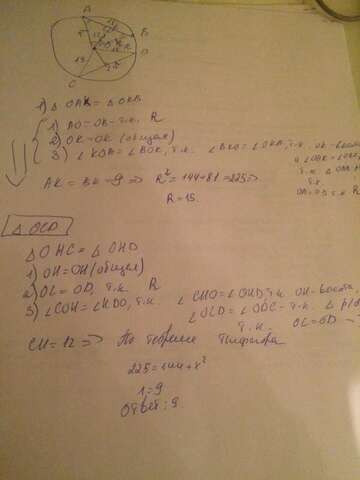 A
B
O
D
C
1) △ OAK = △ OKB
1) AO = OB - т.к. R
2) OK - OK (общая)
3) ∠KOA = ∠BOK, т.к. ∠BKO = ∠OKA, т.к. OK - высота
AK = BK = 9 => R² = 144 + 81 = 225 =>
R = 15.
△ OCD
△ OHC = △ OHD
1) OH = OH (общая)
2) OC = OD, т.к. R
3) ∠COH = ∠HDO, т.к. ∠CHO = ∠OHD т.к. OH - высота,
∠OCD = ∠ODC - т.к. △ р/б
т.к. OC = OD
CH = 12 => По теореме Пифагора
225 = 144 + x²
x = 9
Ответ: 9